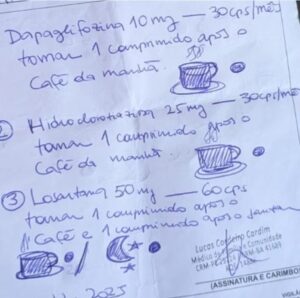 Dapaglifozina 10mg — 30cps/mês
tomar 1 comprimido após o
Café da manhã.
2 Hidroclorotiazida 25mg — 30cps/mês
tomar 1 comprimido após o
Café da manhã
3 Losartana 50mg — 60cps
tomar 1 comprimido após o
Café e 1 comprimido após o jantar
Lucas Cordeiro Cardim
Médico de Família e Comunidade
2025
(ASSINATURA E CARIMBO)